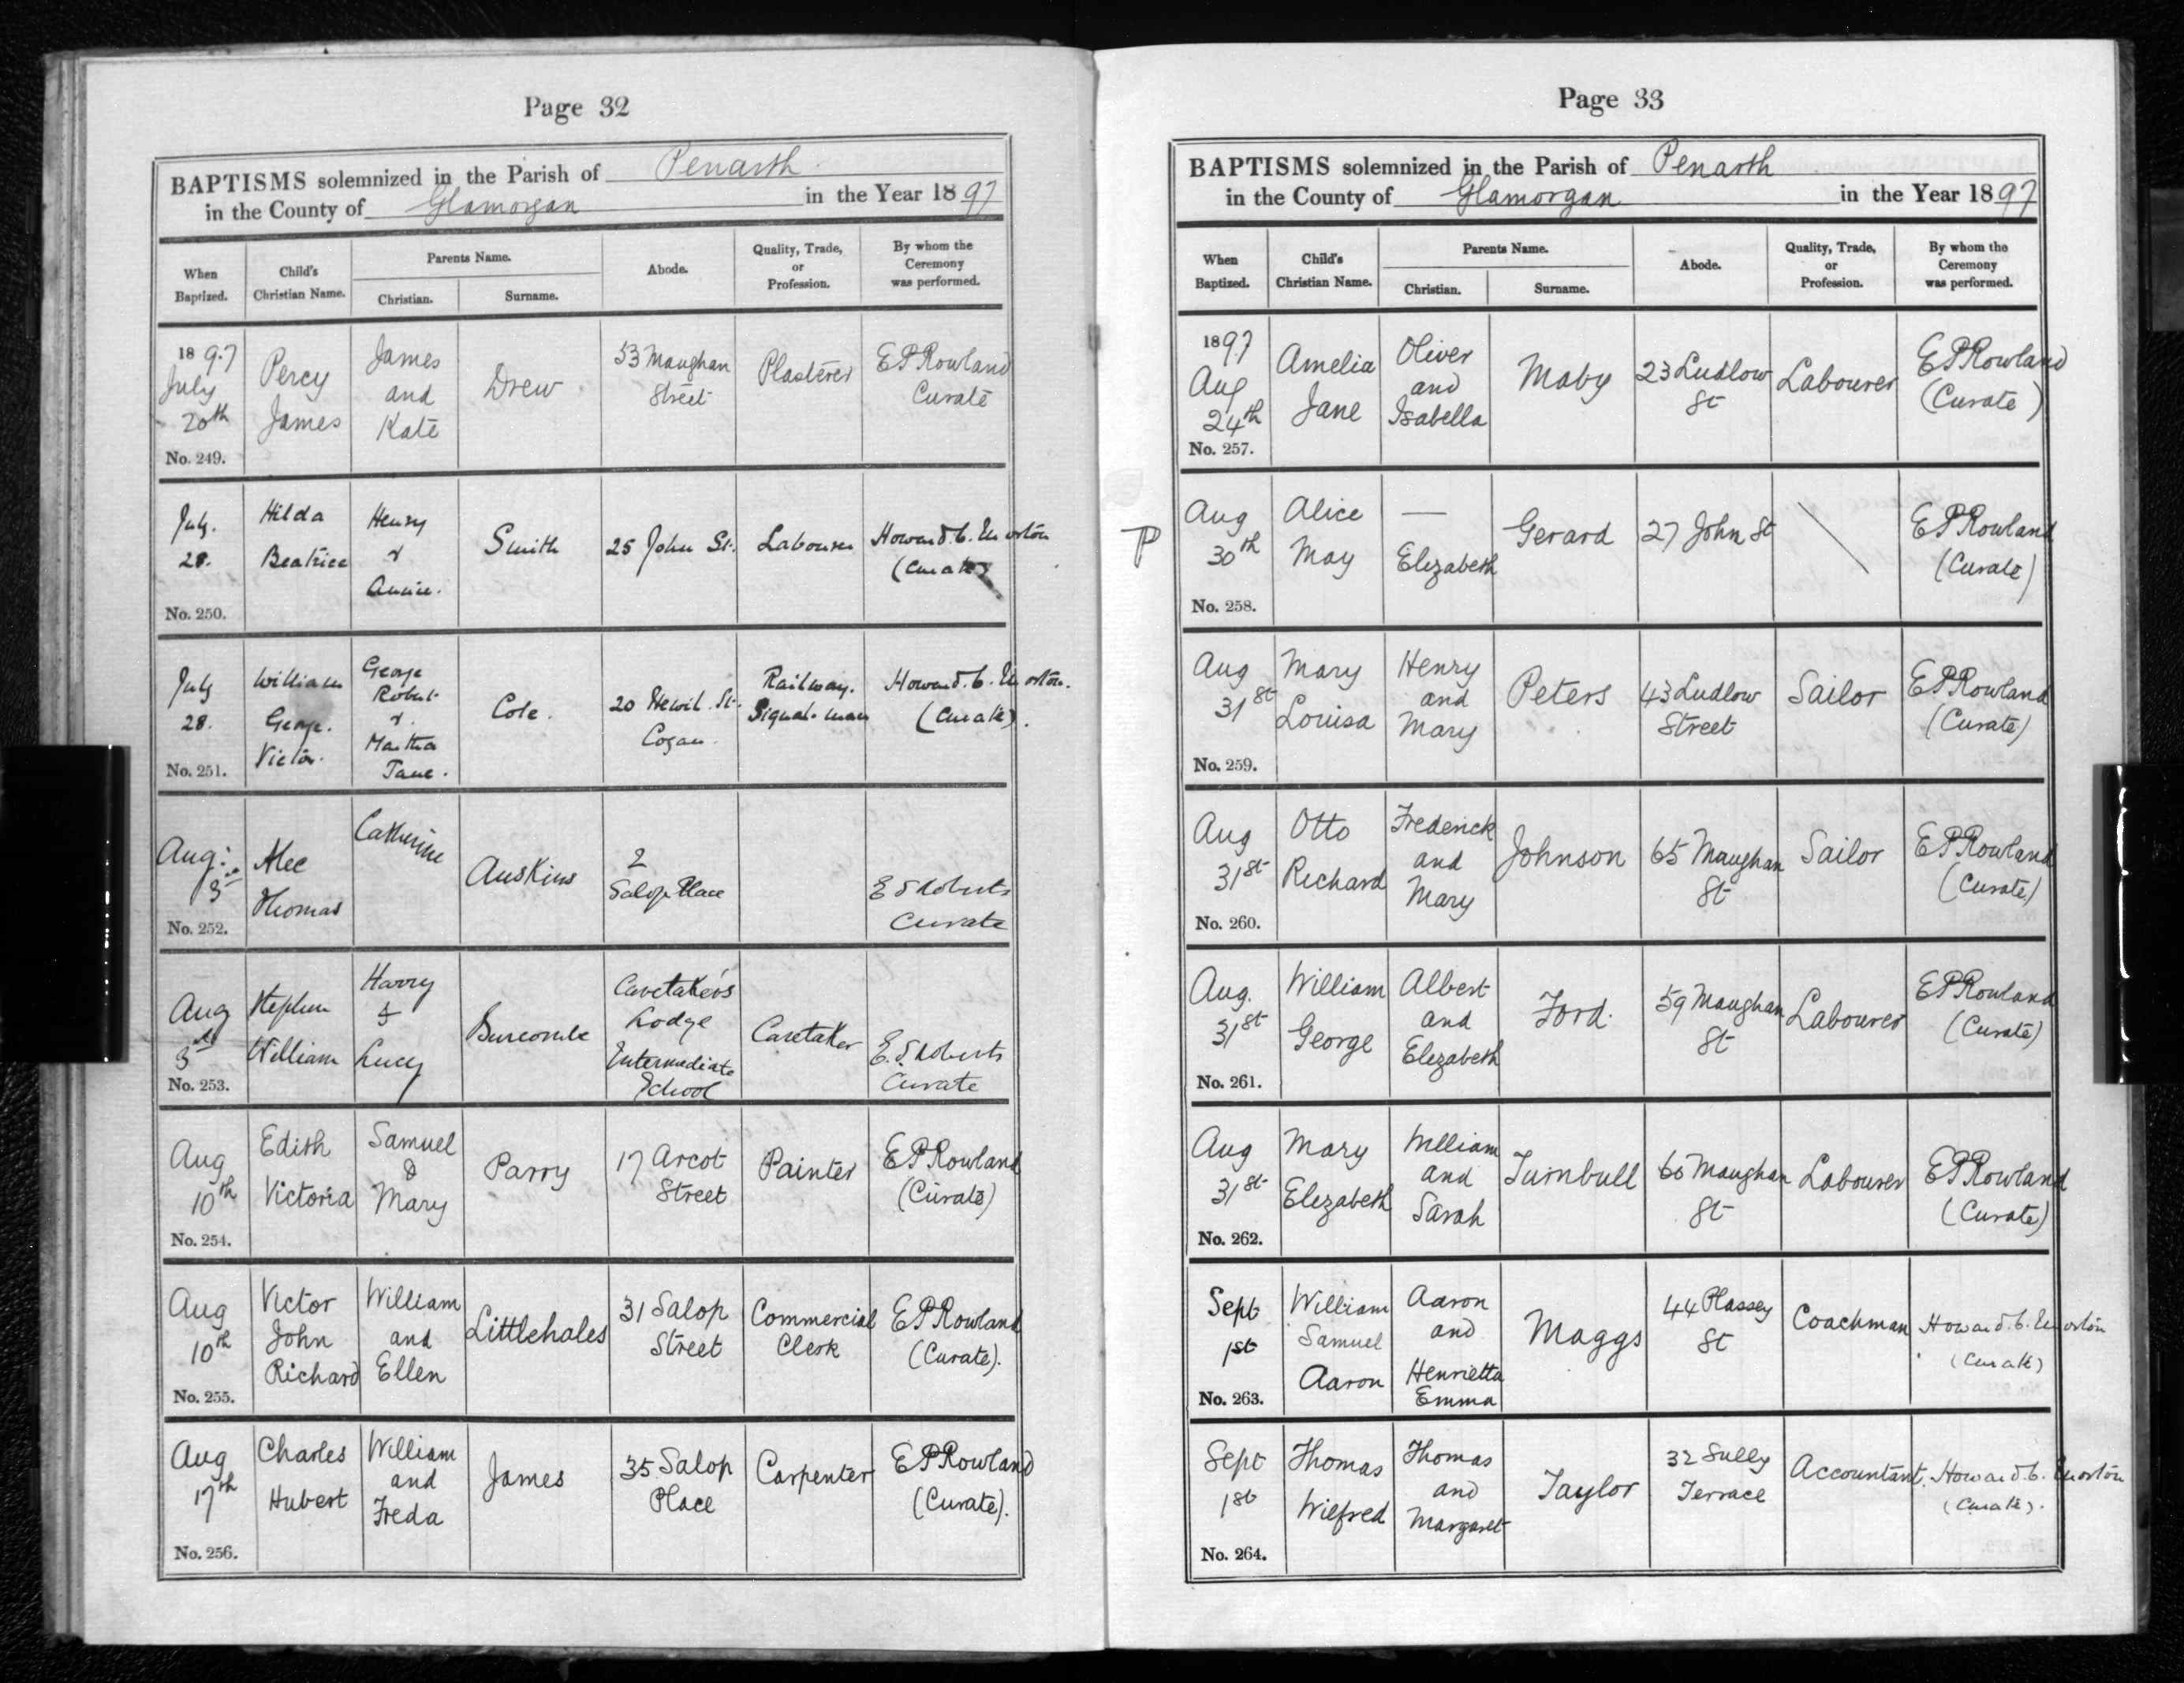 Page 32
BAPTISMS solemnized in the Parish of Penarth
in the County of Glamorgan in the Year 1897
When Baptized. Child's Christian Name. Parents Name. Christian. Surname. Abode. Quality, Trade, or Profession. By whom the Ceremony was performed.
1897 July 20th Percy James James and Kate Drew 53 Maughan Street Plasterer E P Rowland Curate
No. 249.
July. 28. Hilda Beatrice Henry & Annie. Smith 25 John St. Labourer Howard. C. (Curate)
No. 250.
July 28. William George. Victor. George Robert & Martha Jane. Cole. 20 Hewil St. Cogan Railway. Signal-man Howard. C. (Curate).
No. 251.
Aug: 3rd Alec Thomas Catherine Auskins 2 Salop Place E S Roberts Curate
No. 252.
Aug 3rd Stephen William Harry & Lucy Burcombe Caretaker's Lodge Intermediate School Caretaker E. S Roberts Curate
No. 253.
Aug 10th Edith Victoria Samuel & Mary Parry 17 Arcot Street Painter E P Rowland (Curate)
No. 254.
Aug 10th Victor John Richard William and Ellen Littlehales 31 Salop Street Commercial Clerk E P Rowland (Curate).
No. 255.
Aug 17th Charles Hubert William and Freda James 35 Salop Place Carpenter E P Rowland (Curate).
No. 256.
Page 33
BAPTISMS solemnized in the Parish of Penarth
in the County of Glamorgan in the Year 1897
When Baptized. Child's Christian Name. Parents Name. Christian. Surname. Abode. Quality, Trade, or Profession. By whom the Ceremony was performed.
1897 Aug 24th Amelia Jane Oliver and Isabella Maby 23 Ludlow St Labourer E P Rowland (Curate)
No. 257.
P Aug 30th Alice May — Elizabeth Gerard 27 John St \ E P Rowland (Curate)
No. 258.
Aug 31st Mary Louisa Henry and Mary Peters 43 Ludlow Street Sailor E P Rowland (Curate)
No. 259.
Aug 31st Otto Richard Frederick and Mary Johnson 65 Maughan St Sailor E P Rowland (Curate)
No. 260.
Aug. 31st William George Albert and Elizabeth Ford. 59 Maughan St Labourer E P Rowland (Curate)
No. 261.
Aug 31st Mary Elizabeth William and Sarah Turnbull 60 Maughan St Labourer E P Rowland (Curate)
No. 262.
Sept 1st William Samuel Aaron Aaron and Henrietta Emma Maggs 44 Plassey St Coachman Howard. C. (Curate)
No. 263.
Sept 1st Thomas Wilfred Thomas and Margaret Taylor 32 Sully Terrace Accountant. Howard. C. (Curate).
No. 264.